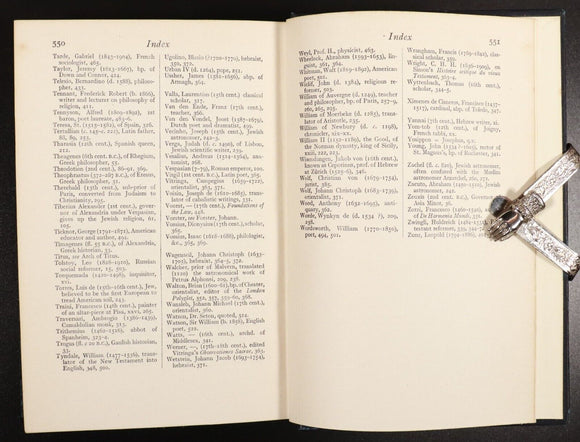 550
Index
Tarde, Gabriel (1843-1904), French
sociologist, 465.
Taylor, Jeremy (1613-1667), bp. of
Down and Connor, 424.
Telesio, Bernardino (d. 1588), philosopher,
433.
Tennant, Frederick Robert (b. 1866),
writer and lecturer on philosophy of
religion, 411.
Tennyson, Alfred (1809-1892), 1st
baron, poet laureate, 504.
Teresa, St. (1515-1582), Spain, 326.
Tertullian (c. 145-c. 222), Latin father,
88, 89, 253.
Tharasia (12th cent.), Spanish queen,
212.
Theagenes (6th cent. B.C.), of Rhegium,
Greek philosopher, 53.
Theodotion (2nd cent.), 86-91, 369.
Theophrastus (372-287 B.C.), Greek
philosopher, 32.
Theobald (13th cent.), sub-prior of
Paris, converted from Judaism to
Christianity, 295.
Tiberius Alexander (1st cent.), governor
of Alexandria under Vespasian,
gives up the Jewish religion, 61,
105.
Ticknor, George (1791-1871), American
educator and author, 494.
Timagenes (fl. 55 B.C.), of Alexandria,
Greek historian, 33.
Titus, see Arch of Titus.
Tolstoy, Leo (1828-1910), Russian
social reformer, 15, 503.
Torquemada (1420-1498), inquisitor,
Torres, Luis de (15th-16th cent.), Jew,
believed to be the first European to
tread American soil, 243.
Traini, Francesco (14th cent.), painter
of an altar-piece at Pisa, xxvi, 265.
Traversari, Ambrogio (1386-1439),
Camaldolian monk, 315.
Trithemius (1462-1516), abbot of
Spanheim, 323-4.
Trogus (fl. c 20 B.C.), Gaulish historian,
33.
Tyndale, William (1477-1536), translator
of the New Testament into
English, 348, 500.
Ugolino, Blasio (1700-1770), hebraist,
350, 370.
Urban IV (d. 1264), pope, 251.
Ussher, James (1581-1656), abp. of
Armagh, 364.
Valla, Laurentius (15th cent.), classical
scholar, 317.
Van den Ende, Franz (17th cent.),
teacher, 366.
Van den Vondel, Joost (1587-1679),
Dutch poet and dramatist, 499.
Vecinho, Joseph (15th cent.), Jewish
astronomer, 242-3.
Verga, Judah (d. 1490), of Lisbon,
Jewish scientific writer, 239.
Vesalius, Andreas (1514-1564), anatomist,
268.
Vespasian (7-79), Roman emperor, 61.
Virgil (1st cent. B.C.), Latin poet, 505.
Vitringa, Campegius (1659-1722),
orientalist, 363, 371.
Voisin, Joseph de (1610-1685), translator
of cabalistic writings, 331.
Vonte, — (15th cent.), Foundations of
the Law, 448.
Vorster, see Forster, Johann.
Vossius, Dionysius (17th cent.), scholar,
365.
Vossius, Isaac (1618-1688), philologist,
&c., 365, 369.
Wagenseil, Johann Christoph (1633-
1705), hebraist, 364-5, 372.
Walcher, prior of Malvern, translated
[1120] the astronomical work of
Petrus Alphonsi, 209, 238.
Walton, Brian (1600-61), bp. of Chester,
orientalist, editor of the London
Polyglot, 352, 357, 359-60, 368.
Wansleb, Johann Michael (17th cent.),
orientalist, 360.
Watson, Dr. Seton, quoted, 514.
Watson, Sir William (b. 1858), English
poet, 522.
Watts, — (16th cent.), archd. of
Middlesex, 341.
Werner, —, (17th-18th cent.), edited
Vitringa's Observationes Sacrae, 363.
Wetstein, Johann Jacob (1693-1754),
hebraist, 371.
Index
551
Weyl, Prof. H., physicist, 465.
Wheelock, Abraham (1593-1653), linguist,
358.
Whitman, Walt (1819-1892), American
poet, 503.
Wiclif, John (d. 1384), religious reformer,
503.
William of Auvergne (d. 1249), teacher
and philosopher, bp. of Paris, 257-9,
260, 265, 303.
William of Moerbeke (d. 1285), translator
of Aristotle, 265.
William of Newbury (d. c 1198),
chronicler, xix-xx.
William II (1153-1189), the Good, of
the Norman dynasty, king of Sicily,
xxiii, 222.
Winendangen, Jakob von (16th cent.),
known as Ceporinus, prof. of Hebrew
at Zürich (1525-6), 346.
Wolf, Christian von (1679-1754),
jurist, 385.
Wolf, Johann Christoph (1683-1739),
orientalist, 371.
Wood, Anthony (1632-1695), antiquary,
296.
Worde, Wynkyn de (d. 1534 ?), 209,
238.
Wordsworth, William (1770-1850),
poet, 494, 501.
Wrangham, Francis (1769-1842), classical
scholar, 359.
Wright, C. H. H. (1836-1909), on
Simon's Histoire critique du vieux
Testament, 367-4.
Wyttenbach, Thomas (16th cent.),
scholar, 344-5.
Ximenes de Cisneros, Francisco (1437-
1517), cardinal, abp. of Toledo, 347.
Yannai (7th cent.), Hebrew writer, 21.
Yom-tob (12th cent.), of Joigny,
French rabbi, 22.
Yosippon = Josephus, q.v.
Young, John (1534 ?-1605), rector of
St. Magnus's, bp. of Rochester, 341.
Zachel (fl. c
often confused with the Muslim
astronomer Azarchel, 223.
Zacuto, Abraham (1450-1510), Jewish
astronomer, 242.
Zeoxis (2nd cent.), Governor of
Asia Minor, 36.
Zorzi, Francesco (1460-1540), author
of De Harmonia Mundi, 326.
Zwingli, Huldreich (1484-1531), Protestant
reformer, 339, 344-6.
Zunz, Leopold (1794-1886),